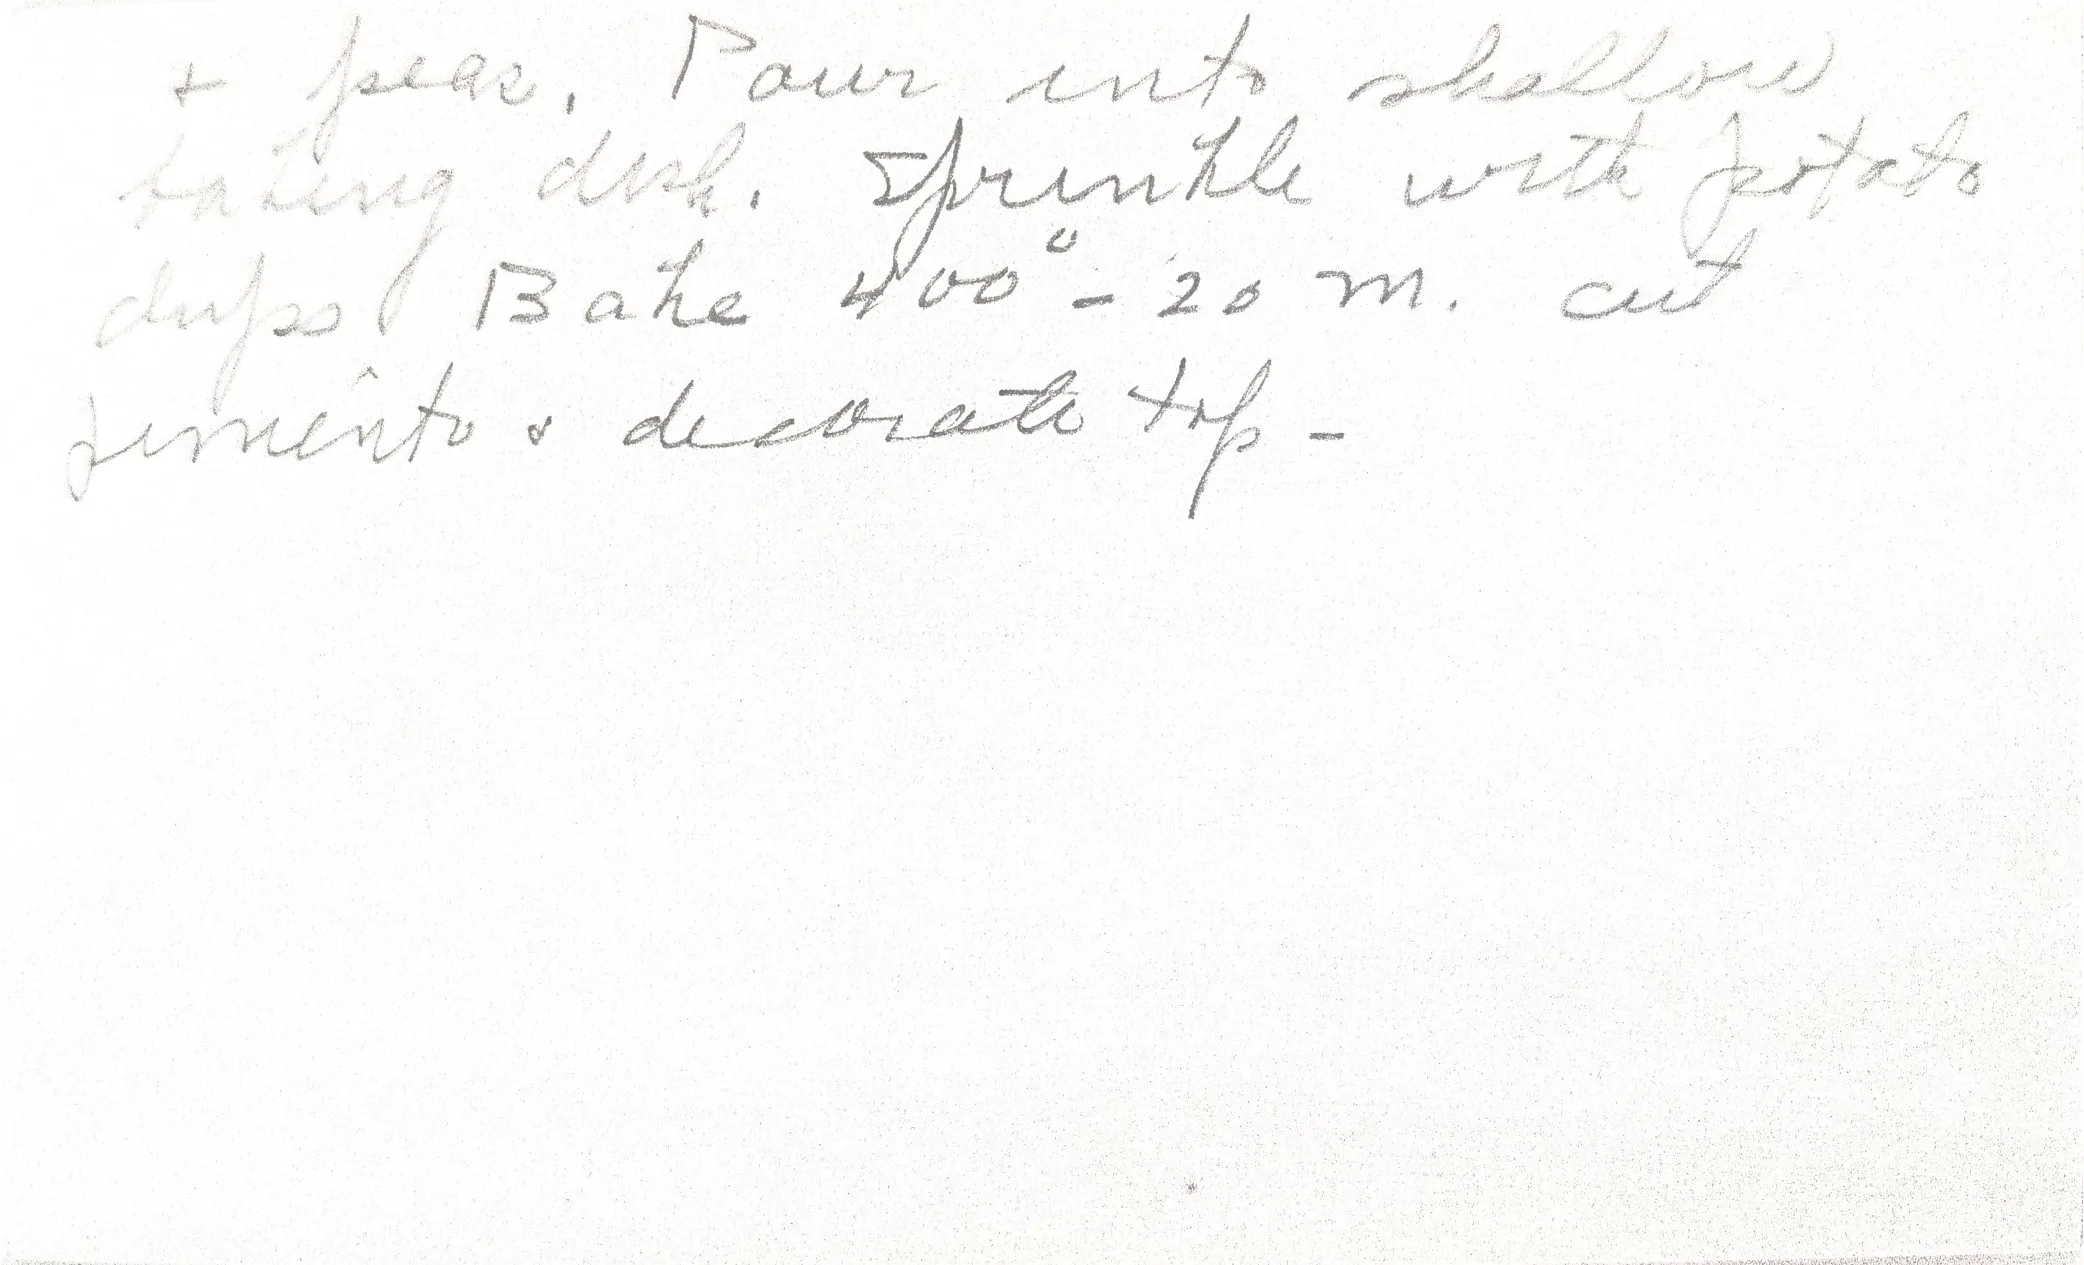 + peas. Pour into shallow
baking dish. Sprinkle with potato
chips Bake 400° - 20 m. cut
pimento & decorate top -